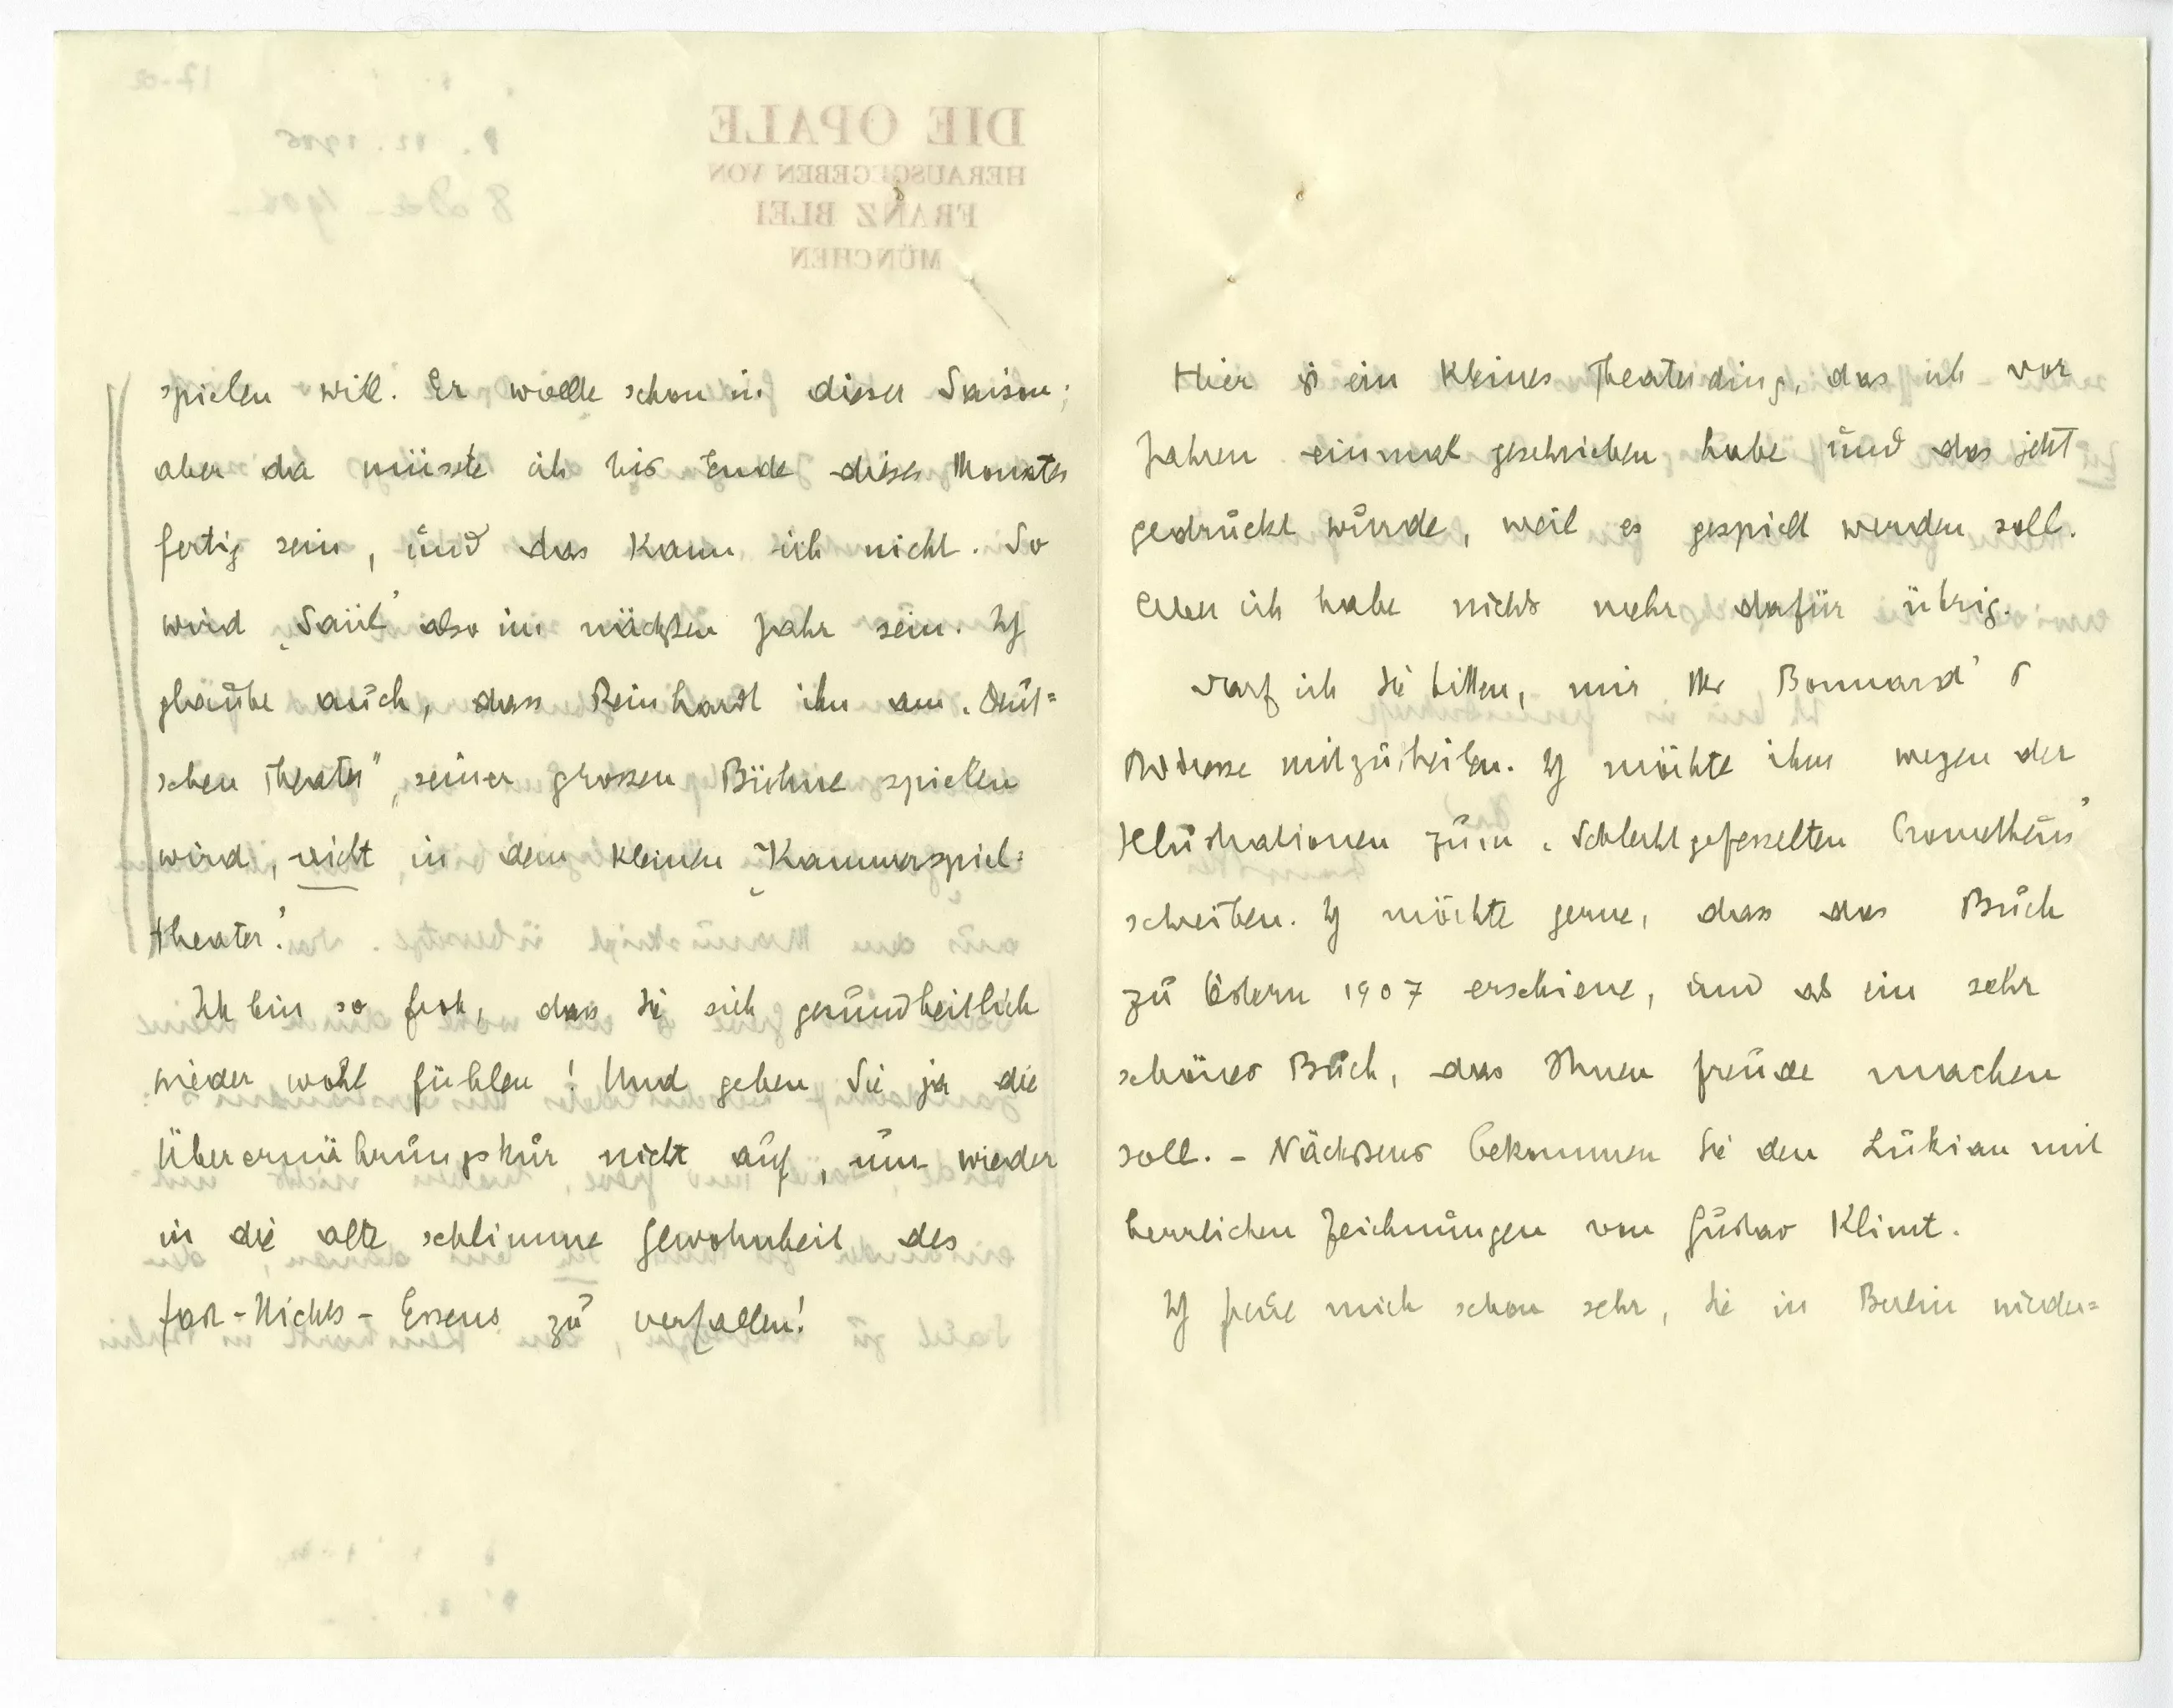 spielen will. Er wollte schon in dieser Saison;
aber da müsste ich bis Ende dieses Monates
fertig sein, und das kann ich nicht. So
wird „Saül" also im nächsten Jahr sein. Ich
glaube auch, dass Reinhardt ihn am „Deut=
schen Theater", seiner grossen Bühne spielen
wird, nicht in dem kleinen „Kammerspiel=
theater."
Ich bin so froh, dass Sie sich gesundheitlich
wieder wohl fühlen! Und geben Sie ja die
Überernährungskur nicht auf, um wieder
in die alte schlimme Gewohnheit des
fast-Nichts-Essens zu verfallen!
Hier ist ein kleines Theaterding, das ich vor
Jahren einmal geschrieben habe und das jetzt
gedruckt wurde, weil es gespielt werden soll.
Aber ich habe nichts mehr dafür übrig.
Darf ich Sie bitten, mir Mr Bonnard's
Adresse mitzutheilen. Ich möchte ihm wegen der
Illustrationen zum „Schlechtgefesselten Prometheus"
schreiben. Ich möchte gerne, dass das Buch
zu Ostern 1907 erschiene, und als ein sehr
schönes Buch, das Ihnen Freude machen
soll. – Nächstens bekommen Sie den Lukian mit
herrlichen Zeichnungen von Gustav Klimt.
Ich freue mich schon sehr, Sie in Berlin wieder=
DIE OPALE
HERAUSGEGEBEN VON
FRANZ BLEI
MÜNCHEN